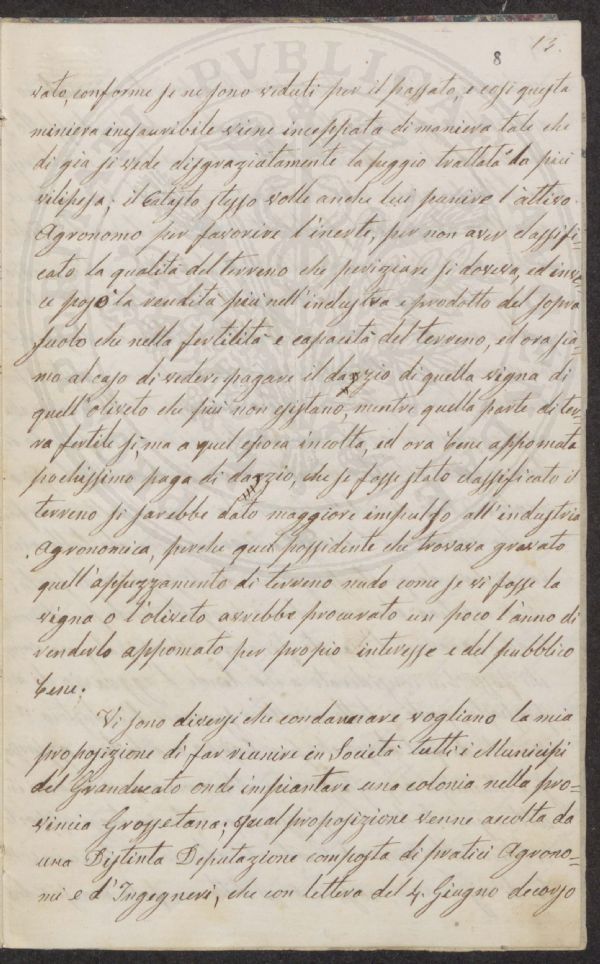 8 13.
vato, conforme se ne sono veduti per il passato, e così questa
miniera inesauribile viene inceppata di maniera tale che
di già si vede disgraziatamente la peggio trattata la più
vilipesa; il Catasto stesso volle anche lui punire l'attivo
Agronomo per favorire l'inerte, per non aver classifi=
cato la qualità del terreno che periziare si doveva, ed inve=
ce pose la rendita più nell'industria e prodotto del sopra
suolo che nella fertilità e capacità del terreno, ed ora sia=
mo al caso di vedere pagare il dazzio di quella vigna di
quell'oliveto che più non esistano, mentre quella parte di ter=
ra fertile sì, ma a quel epoca incolta, ed ora bene appomata
pochissimo paga di dazzio, che se fosse stato classificato il
terreno si sarebbe dato maggiore impulso all'industria
Agronomica, perche quel possidente che trovava gravato
quell'appezzamento di terreno nudo come se vi fosse la
vigna o l'oliveto avrebbe procurato un poco l'anno di
renderlo appomato per proprio interesse e del pubblico
bene.
Vi sono diversi che condannare vogliano la mia
proposizione di far riunire in Società tutti i Municipi
del Granducato onde impiantare una colonia nella pro=
vincia Grossetana; qual proposizione venne accolta da
una Distinta Deputazione composta di pratici Agrono=
mi e d'Ingegneri, che con lettera del 4. Giugno decorso
PVBLICA